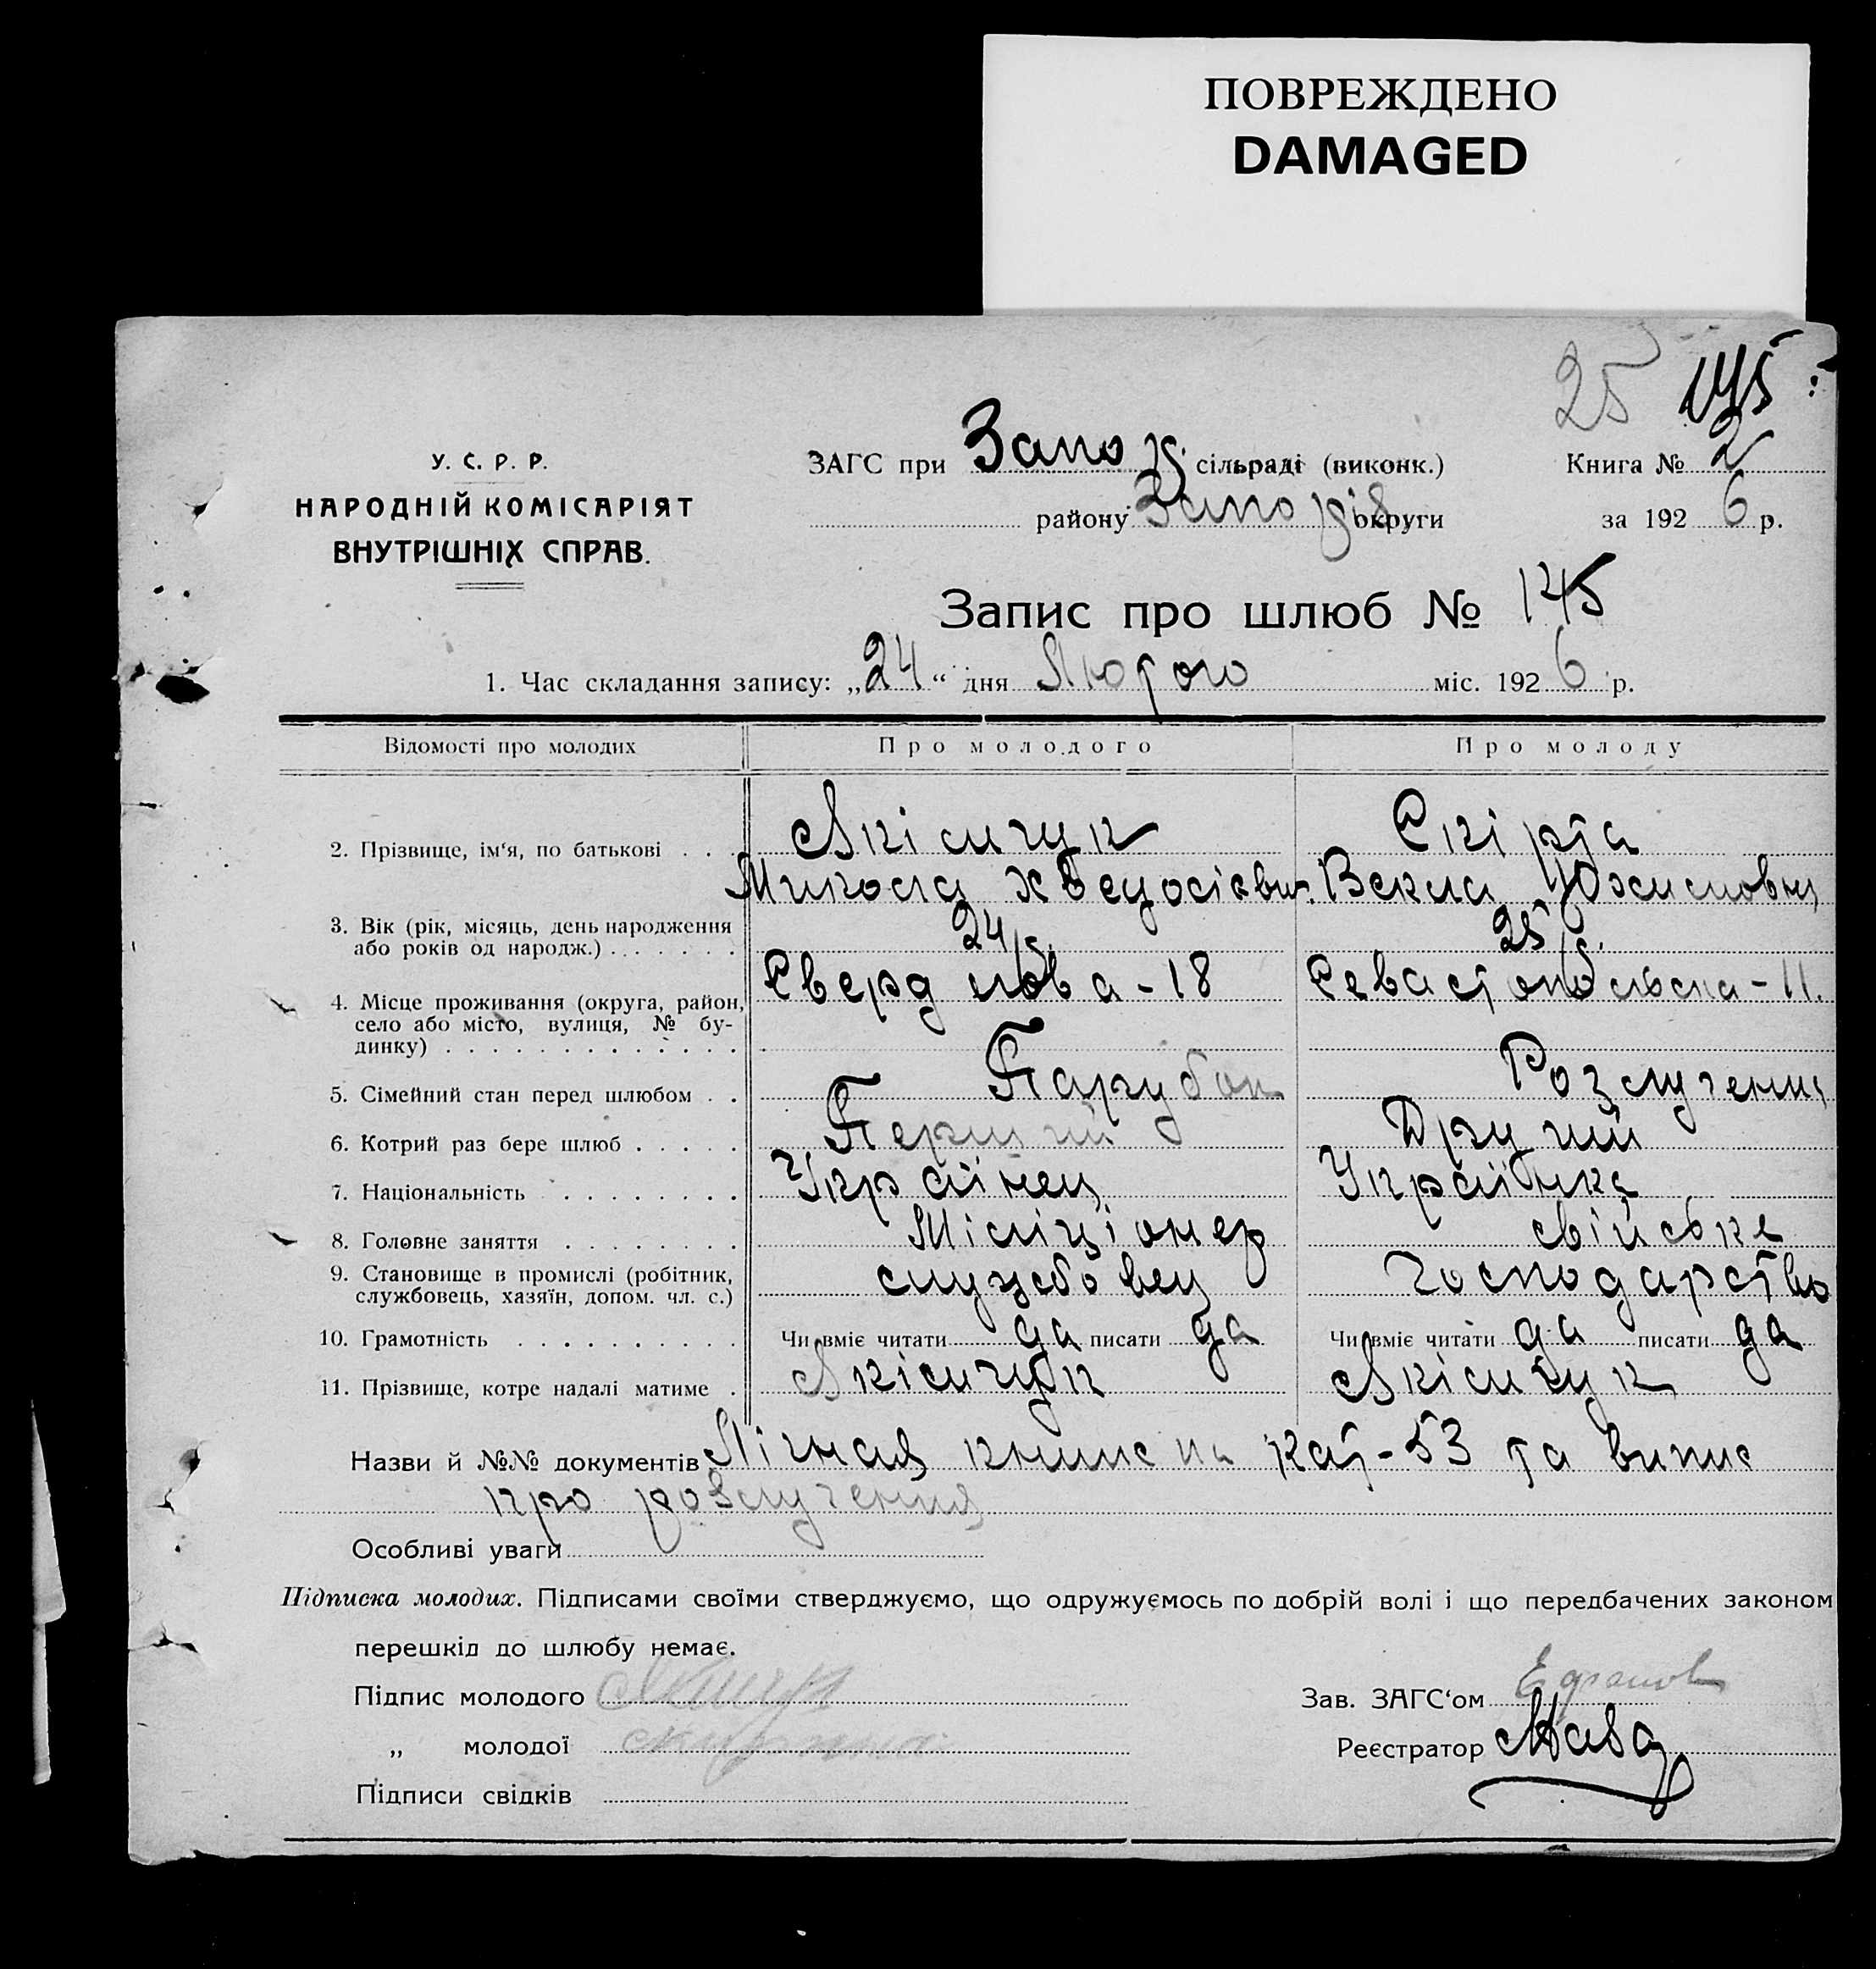 ПОВРЕЖДЕНО
DAMAGED
25 145
У. С. Р. Р.
НАРОДНІЙ КОМІСАРІЯТ
ВНУТРІШНІХ СПРАВ.
ЗАГС при Запор. сільраді (виконк.) Книга № 2
району Запоріз. округи за 1926 р.
Запис про шлюб № 145
1. Час складання запису: „24“ дня Лютого міс. 1926 р.
Відомості про молодих Про молодого Про молоду
2. Прізвище, ім‘я, по батькові . . Якімчук Скірта
Микола Векла
3. Вік (рік, місяць, день народження
або років од народж.) . . . . . . 24 р. 25 р.
4. Місце проживання (округа, район, Свердлова-18 Севастопольска-11.
село або місто, вулиця, № бу-
динку) . . . . . . . . . . . . . .
5. Сімейний стан перед шлюбом . . Парубок Розлучена
6. Котрий раз бере шлюб . . . . . Перший Другий
7. Національність . . . . . . . . Українец Українка
8. Головне заняття . . . . . . . . Міліціонер свійське
9. Становище в промислі (робітник,
службовець, хазяїн, допом. чл. с.) службовец господарство
10. Грамотність . . . . . . . . . . Чи вміє читати да писати да Чи вміє читати да писати да
11. Прізвище, котре надалі матиме . Якімчук Якімчук
Назви й №№ документів Лічная книжка -53 та випис
про розлучення
Особливі уваги
Підписка молодих. Підписами своїми стверджуємо, що одружуємось по добрій волі і що передбачених законом
перешкід до шлюбу немає.
Підпис молодого Зав. ЗАГС‘ом
„ молодої Реєстратор
Підписи свідків